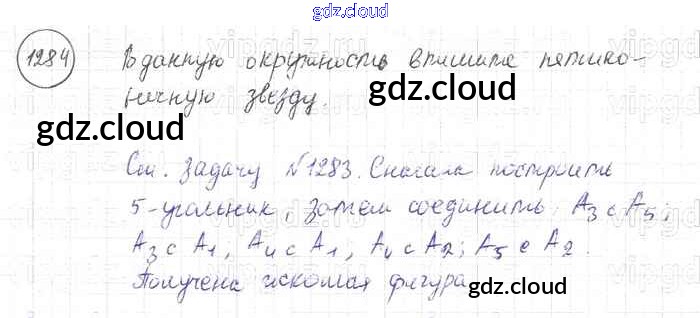 gdz.cloud
1284 В данную окружность впишите пятико-
нечную звезду.
gdz.cloud
gdz.cloud
См. задачу №1283. Сначала построить
5-угольник, затем соединить A3 с A5;
A3 с A1, A4 с A1, A4 с A2; A5 с A2.
Получена искомая фигура
gdz.cloud
gdz.cloud